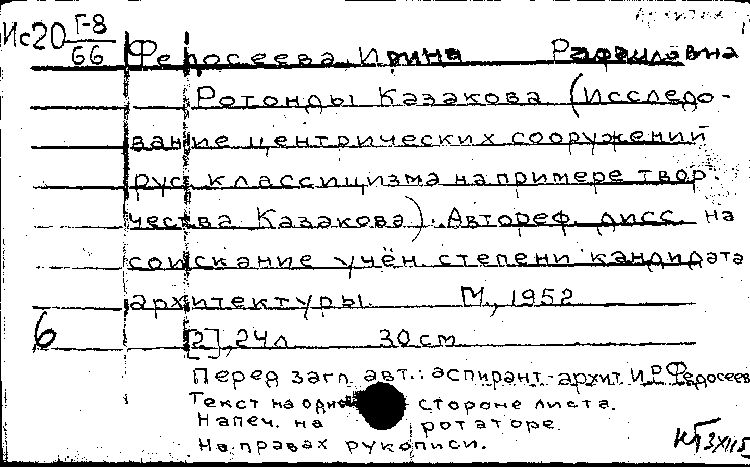 Ис20 Г-8/66 Федосеева Ирина Рафаиловна
Ротонды Казакова (Исследо-
вание центрических сооружений
рус. классицизма на примере твор-
чества Казакова). Автореф. дисс. на
соискание учён. степени кандидата
архитектуры. М., 1952
6 [2], 24 л 30 см
Перед загл. авт.: аспирант-архит. И.Р. Федосеев
Текст на одной стороне листа.
Напеч. на ротаторе.
На правах рукописи.